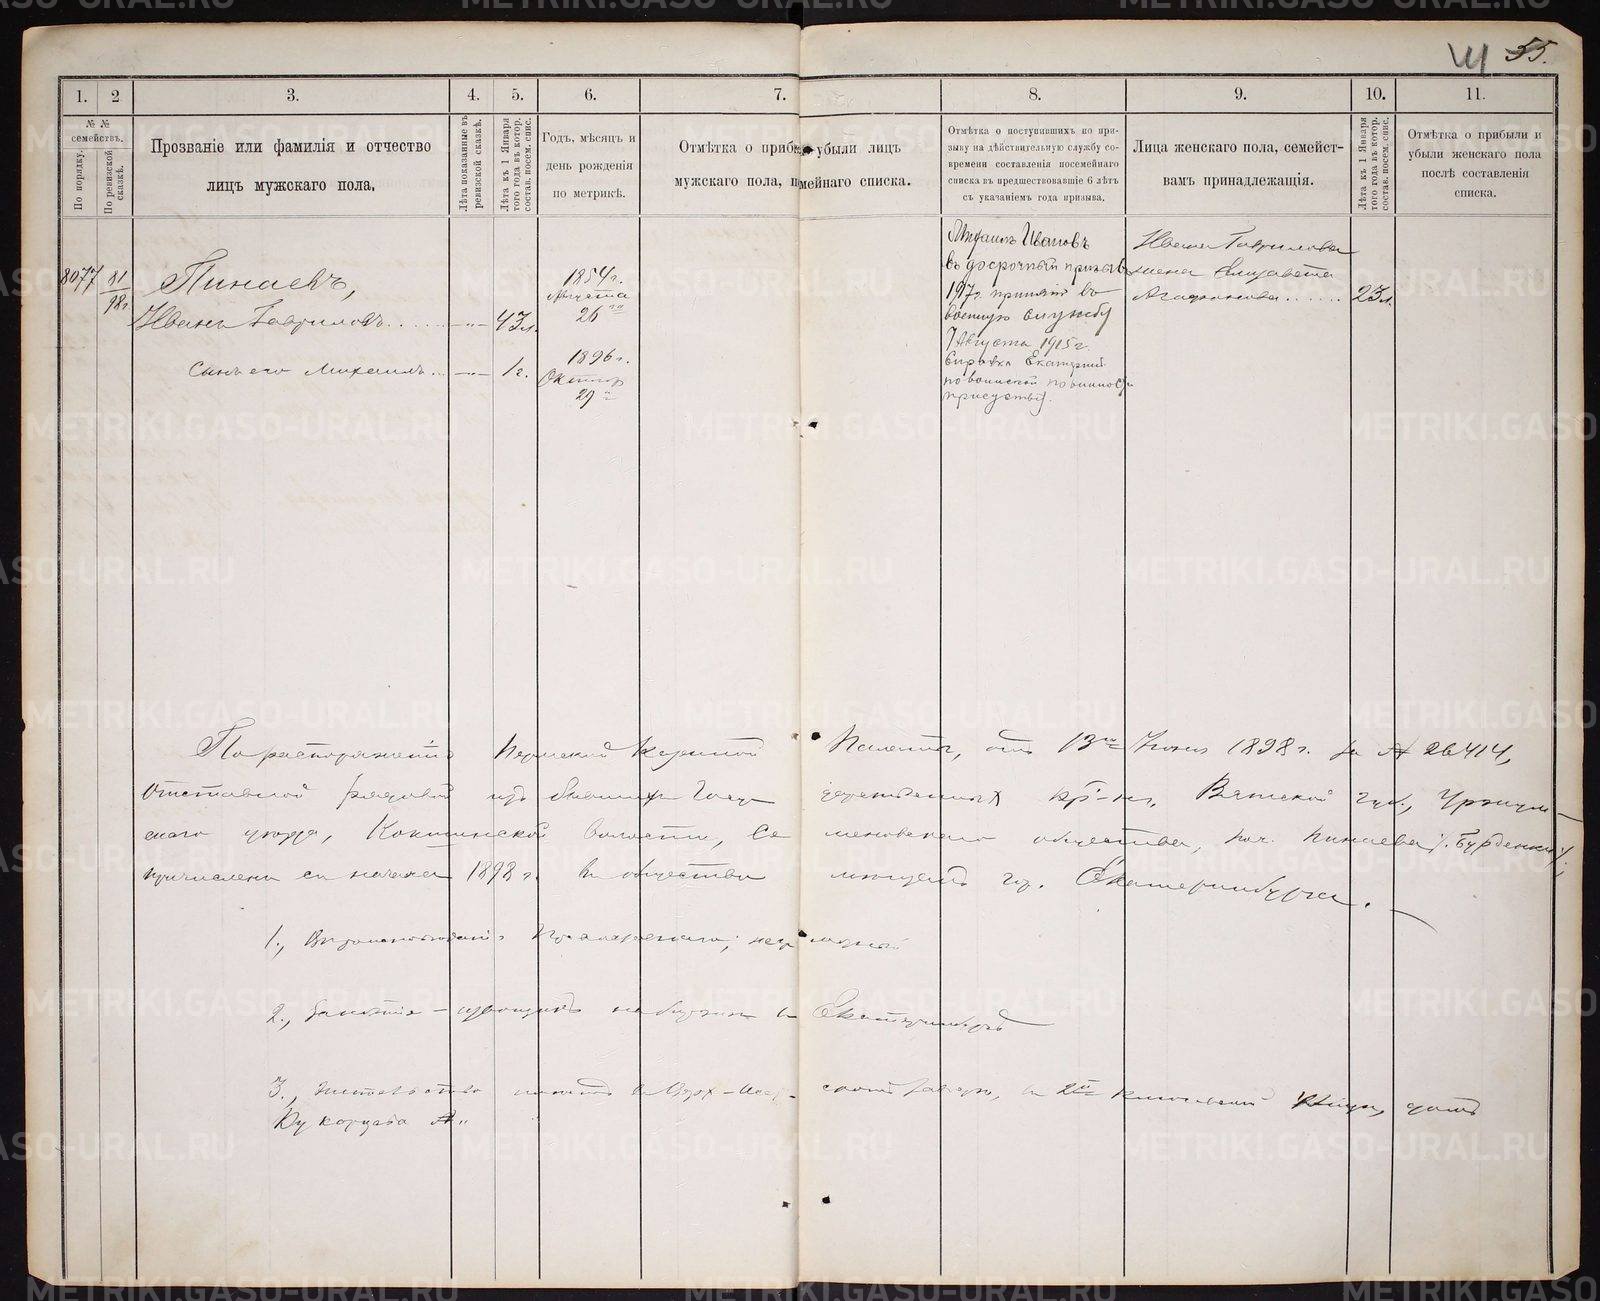 55.
1. 2 3. 4. 5. 6. 7. 8. 9. 10. 11.
№ № семействъ.
По порядку.
По ревизской сказкѣ.
Прозваніе или фамилія и отчество
лицъ мужскаго пола.
Лѣта показанныя въ ревизской сказкѣ.
Лѣта къ 1 Января того года въ котор. состав. посем. спис.
Годъ, мѣсяцъ и
день рожденія
по метрикѣ.
Отмѣтка о приб убыли лицъ
мужскаго пола, п мейнаго списка.
Отмѣтка о поступившихъ по при-
зыву на дѣйствительную службу со-
времени составленія посемейнаго
списка въ предшествовавшіе 6 лѣтъ
съ указаніемъ года призыва.
Лица женскаго пола, семейст-
вамъ принадлежащія.
Лѣта къ 1 Января того года въ котор. состав. посем. спис.
Отмѣтка о прибыли и
убыли женскаго пола
послѣ составленія
списка.
8077 81/98г
Пинаевъ,
Иванъ Гавриловъ ..... —„— 43 л.
1854 г.
Августа
26го
сынъ его Михаилъ ... —„— 1 г.
1896 г.
Октябр
29го
Михаилъ Ивановъ
въ досрочный призывъ
1917 г. принятъ во
военную службу
7 Августа 1915 г.
Справка Екатерин.
по воинской повинности
присутствія.
Ивана Гаврилова
жена Елизавета
Агафонова ...... 23 л.
По распоряженію Пермской Казенной Палаты, отъ 13го Іюня 1898 г. за № 26414,
Отставной рядовой изъ бывшихъ Государственныхъ кр-нъ, Вятской губ., Уржум-
скаго уѣзда, Кокшинской волости, Се меновскаго общества, Пинаевъ
причисленъ съ начала 1898 г. въ общество мѣщанъ гор. Екатеринбурга.
1., Вѣроисповѣданія Православнаго;
2., Занятіе — въ Екатеринбургѣ
3., Жительство въ Верх-Исет- скомъ заводѣ, въ 2й улицѣ, домъ
№„